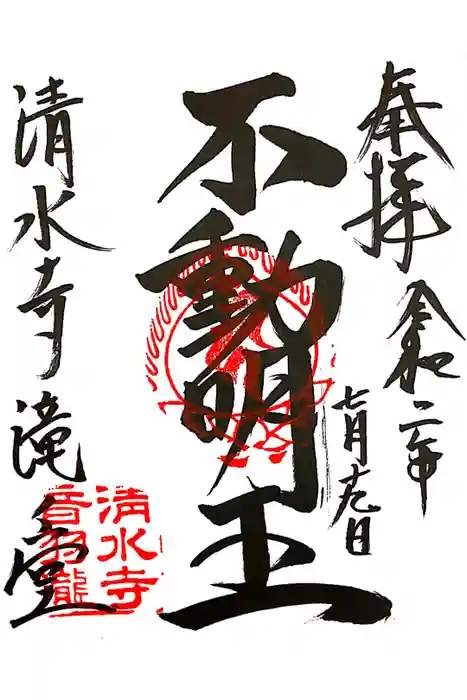 奉拝 令和二年
七月十九日
不動明王
清水寺 滝堂
清水寺
音羽瀧